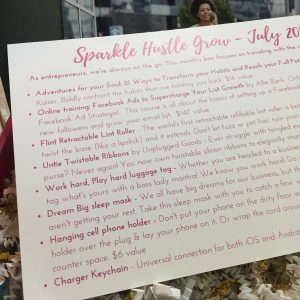 Sparkle Hustle Grow - July 20
As entrepreneurs, we're always on the go. This month's box focuses on traveling with the
• Adventures for your Soul: 21 Ways to Transform your Habits and Reach your Full Pot
Kaiser. Boldly confront the habits that are holding you back. $16 value
• Online training: Facebook Ads to Supercharge your List Growth by Allie Bjerk, O
Facebook Ad Strategist. This course is all about the basics of setting up a Facebook
new followers and grow your email list. $147 value
• Flint Retractable Lint Roller - The world's first retractable refillable lint roller is be
twist the base (like a lipstick) and it extends. Don't let fuzz or pet hair ruin your
• Untie Twistable Ribbons by Unplugged Goods - Ever struggle with tangled ea
purse? Never again! You now own twistable silicon ribbons to elegantly
• Work hard, Play hard luggage tag - Whether you are headed to a business
tag what's yours with a boss lady mantra. We know you work hard! Do
• Dream Big sleep mask - We all have big dreams for our business, but the
aren't getting your rest. Take this sleep mask with you to catch a few
• Hanging cell phone holder - Don't put your phone on the dirty floor w
holder over the plug & lay your phone on it. Or wrap the cord around
counter space. $6 value
• Charger Keychain - Universal connection for both iOS and Andro